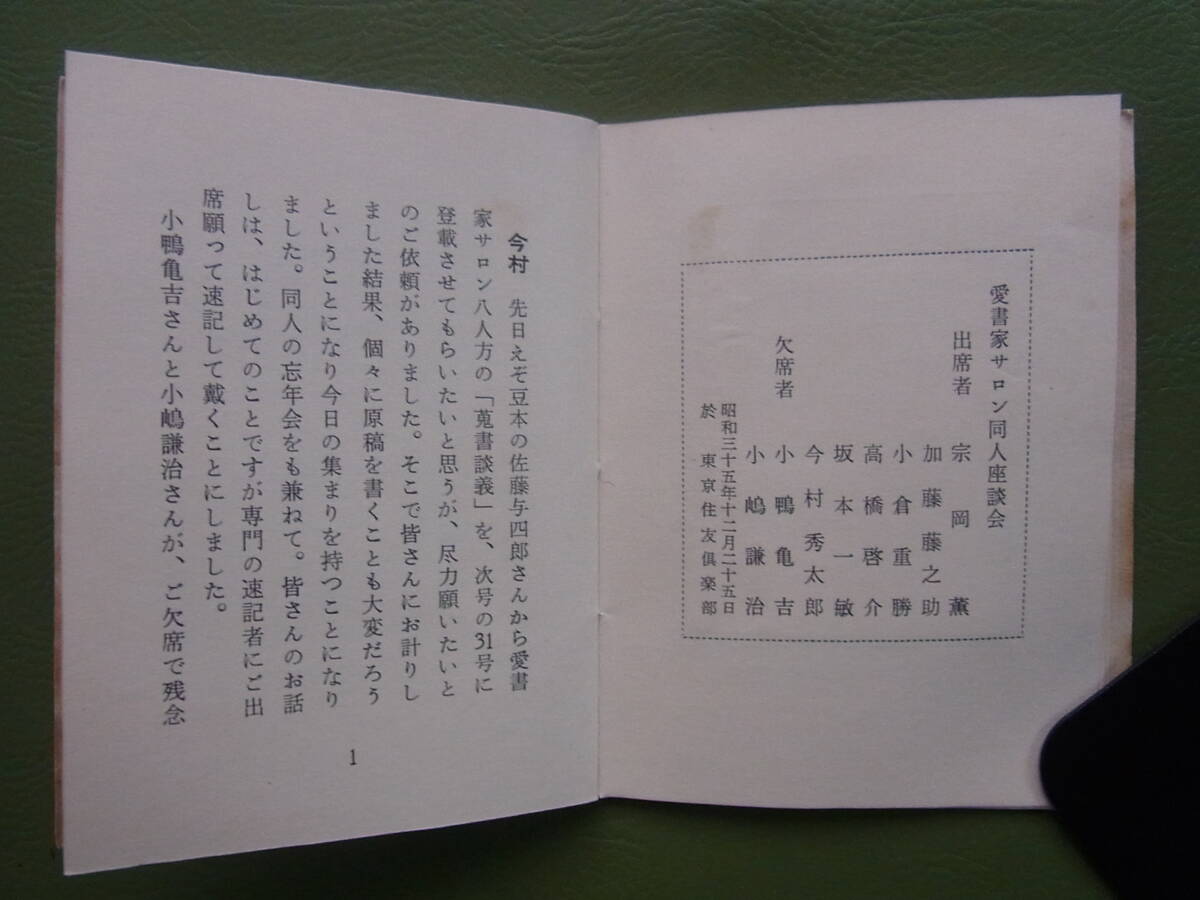 愛書家サロン同人座談会
出席者
宗岡薫
加藤藤之助
小倉重勝
高橋啓介
坂本一敏
今村秀太郎
欠席者
小鴨亀吉
小嶋謙治
昭和三十五年十二月二十五日
於 東京住友倶楽部
今村 先日えぞ豆本の佐藤与四郎さんから愛書
家サロン八人方の「蒐書談義」を、次号の31号に
登載させてもらいたいと思うが、尽力願いたいと
のご依頼がありました。そこで皆さんにお計りし
ました結果、個々に原稿を書くことも大変だろう
ということになり今日の集まりを持つことになり
ました。同人の忘年会をも兼ねて。皆さんのお話
しは、はじめてのことですが専門の速記者にご出
席願って速記して戴くことにしました。
小鴨亀吉さんと小嶋謙治さんが、ご欠席で残念
1